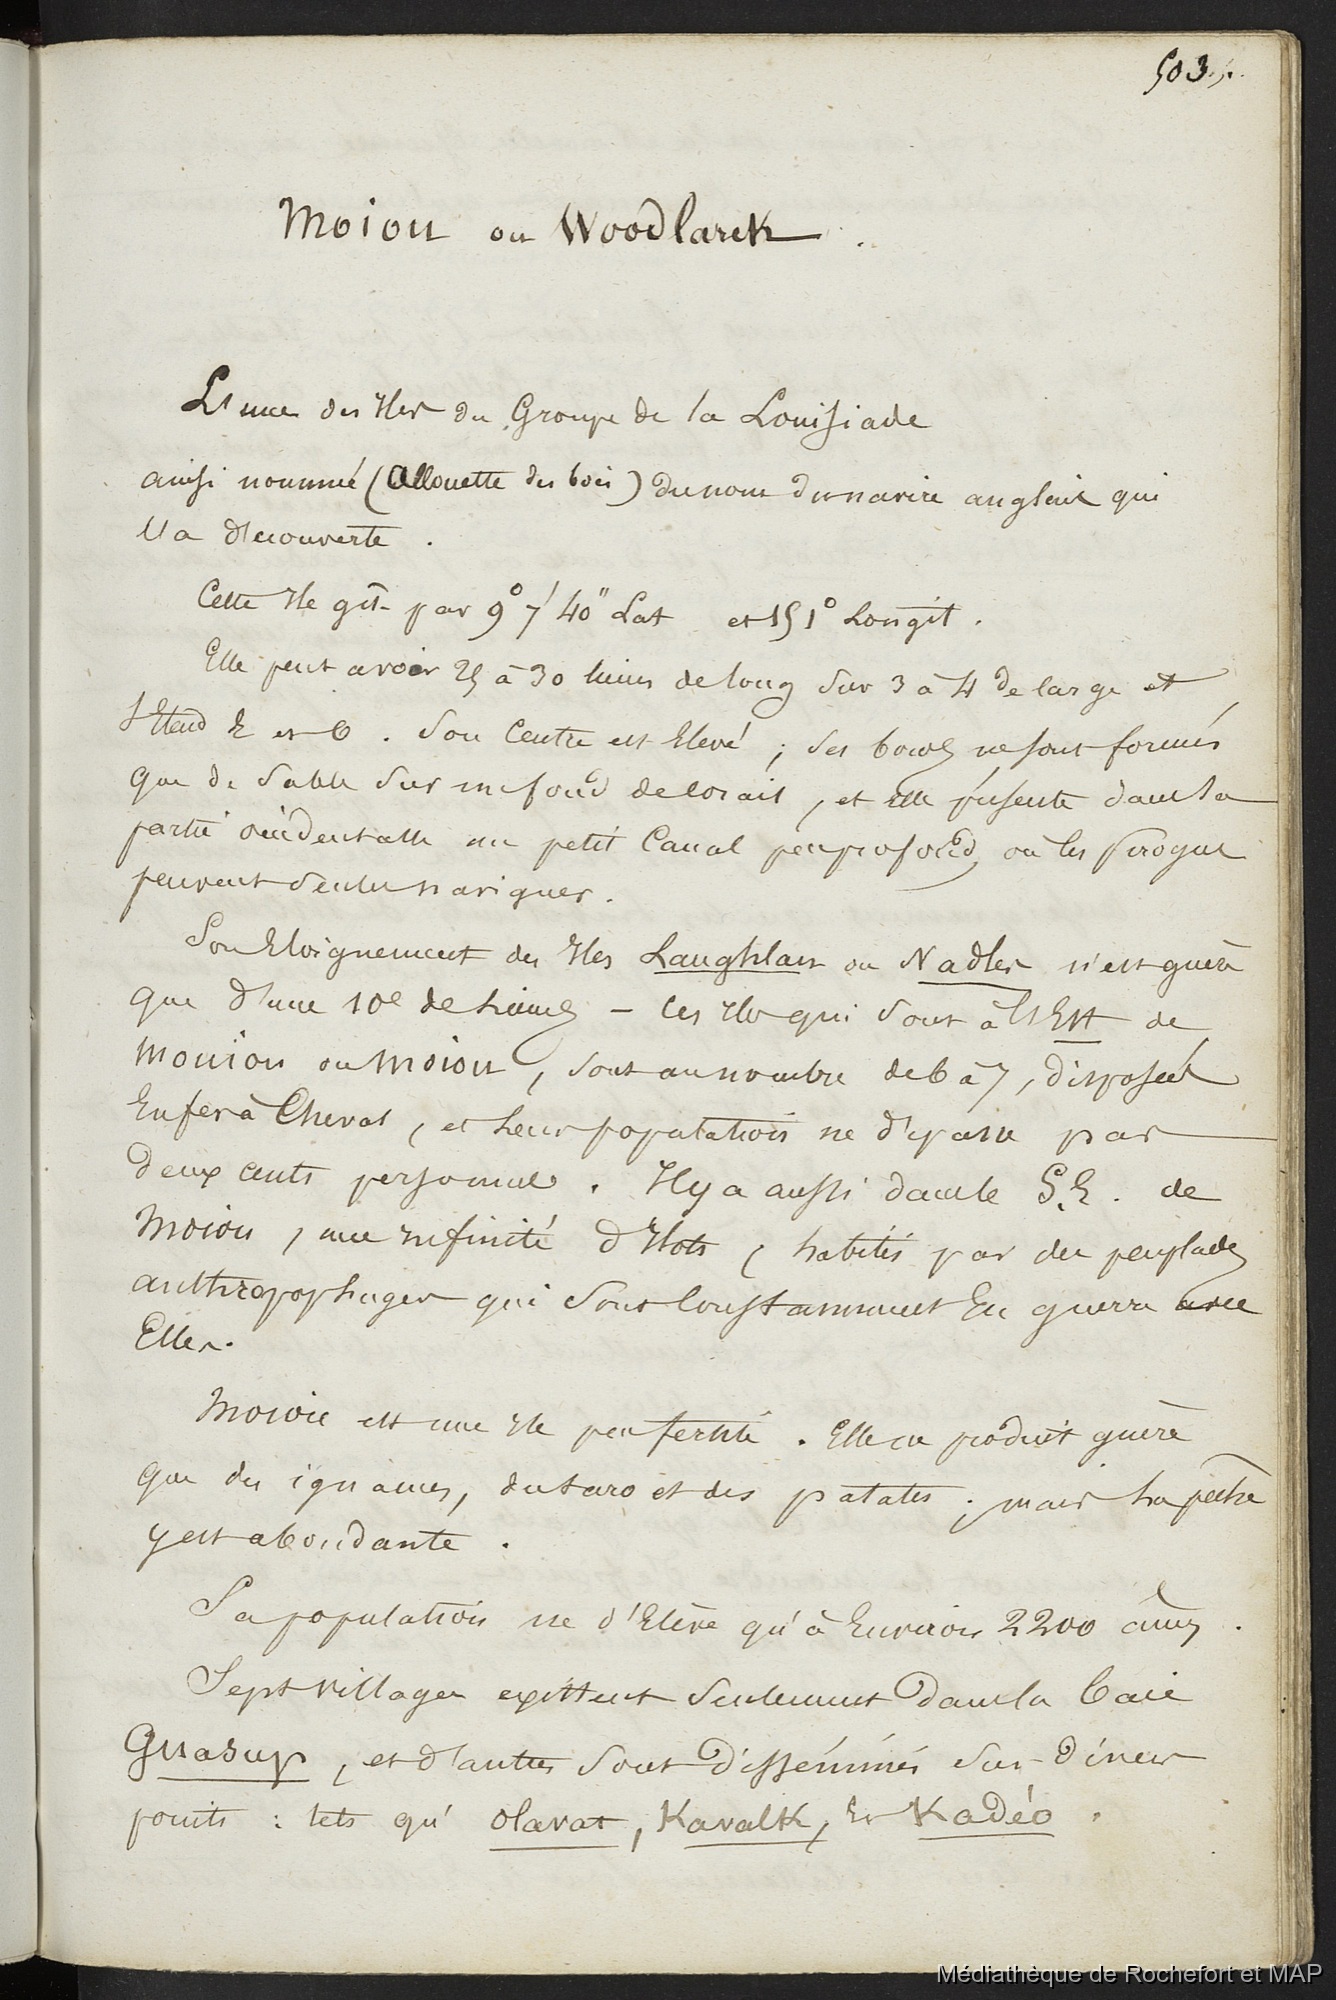 503.
Moiou ou Woodlarck .
L'une des Iles du Groupe de la Louisiade
ainsi nommé (Allouette des bois) du nom d'un navire anglais qui
l'a découverte .
Cette Ile gît par 9° 7' 40" Lat et 151° Longit .
Elle peut avoir 25 à 30 lieues de long sur 3 à 4 de large et
s'Etend E et O . Son Centre est Elevé ; ses bords ne sont formés
que de sable sur un fond de corail , et elle présente dans la
partie occidentalle un petit Canal peu profond, où les pirogues
peuvent seules naviguer .
Son Eloignement des Iles Laughlan ou Nadler n'est guère
que d'une 10e de lieues – Ces Iles qui sont à l'Est de
Mouiou ou Moiou , sont au nombre de 6 à 7 , disposées
En fer à Cheval , et Leur population ne dépasse pas
deux cents personnes . Il y a aussi dans le S.E. de
Moiou , une Infinité d'Ilots , habités par des peuplades
anthropophages qui sont Constamment En guerre avec
Elles .
Moiou est une Ile peu fertile . Elle ne produit guère
que des ignames, du taro et des patates ; mais La pêche
y est abondante .
Sa population ne s'Elève qu'à Environ 2200 âmes .
Sept villages existent seulement dans la Baie
Guasup , et d'autres sont disséminés sur divers
points : tels qu' olavat , Kavalk , Et Kadéo .
Médiathèque de Rochefort et MAP